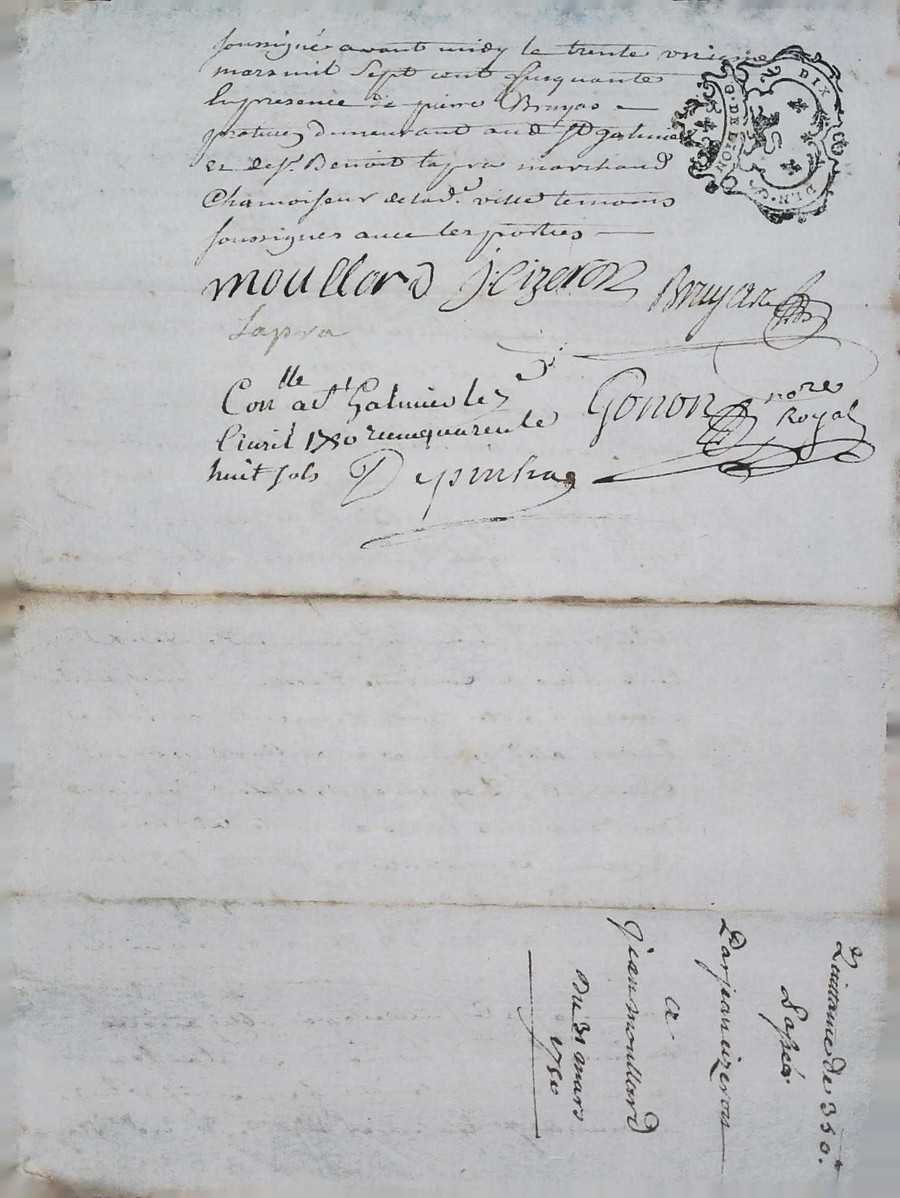 soussigné avant midy le trente unieme
mars mil sept cent cinquante
En presence de pierre Bruyas
demeurant aud St galmier
et de Sr. Benoit lapra marchand
Chamoiseur de lad. ville temoins
soussignes avec les parties
moullard j cizeron Bruyas
Lapra
Conlle a St Galmier le 7e
Gonon nore
Royal
l'avril 1750 recu quarente
huit sols Depinha
G. DE LION
DIX
Quittance de 350.tt
passée
par jean cizeron
a
jean moullard
Du 31 mars
1750